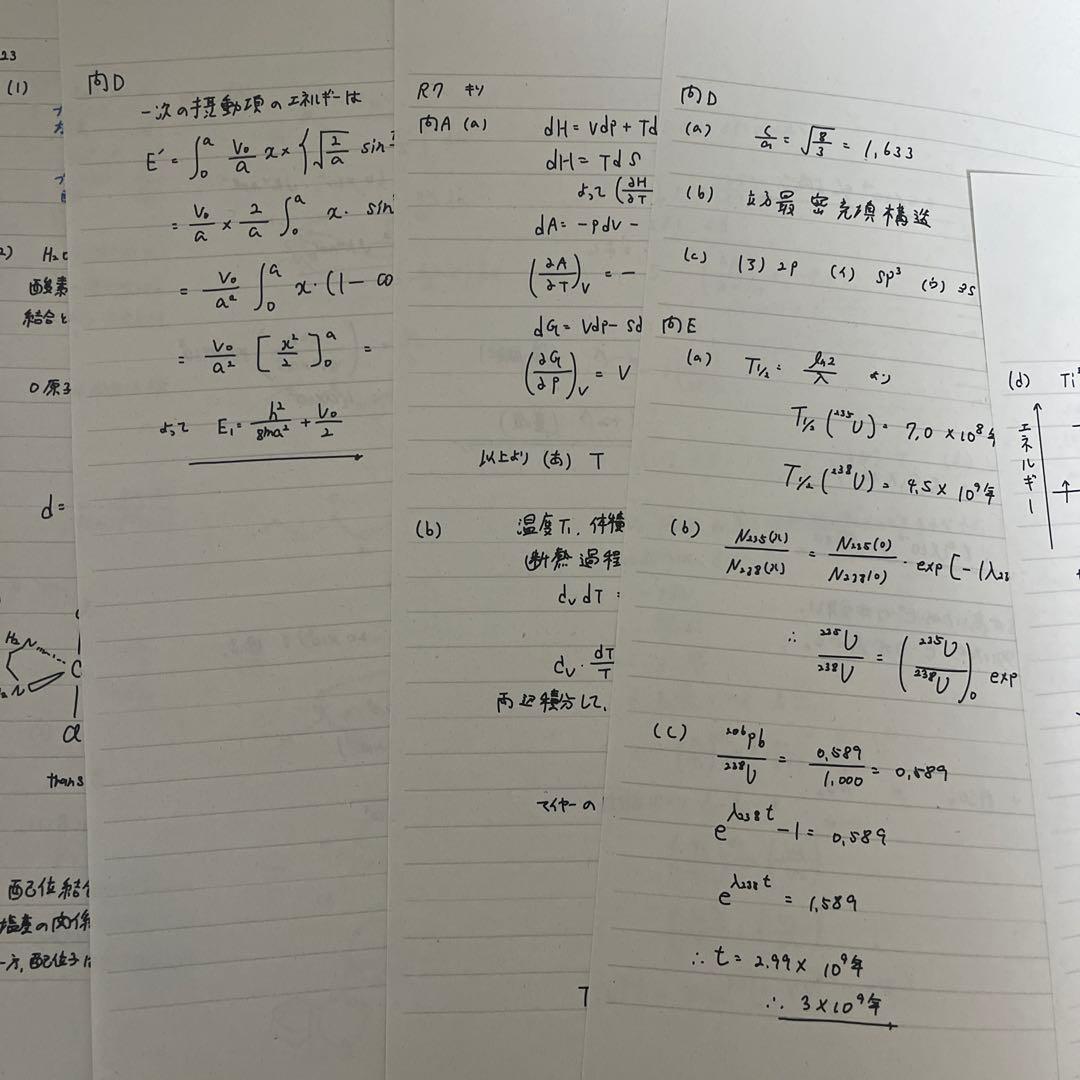 23
(1)
2) H₂
酸素
結合と
d=
H₂N
C
trans
配位結合
塩基の関係
一方,配位子は
問D
一次の摂動項のエネルギーは
E' = ∫₀ᵃ V₀/a x × {√(2/a) sin
= V₀/a × 2/a ∫₀ᵃ x・sin
= V₀/a² ∫₀ᵃ x・(1 - co
= V₀/a² [x²/2]₀ᵃ =
よって E₁ = h²/8ma² + V₀/2
R7 キソ
問A (a) dH = Vdp + Td
dH = TdS
よって (∂H/∂T
dA = -pdV -
(∂A/∂T)V = -
dG = Vdp - Sd
(∂G/∂P)V = V
以上より (あ) T
(b) 温度T₁, 体積
断熱過程
dv dT
dv・dT/T
両辺積分して,
マイヤーの
問D
(a) c/a = √(8/3) = 1,633
(b) 立方最密充填構造
(c) (ろ) 2p (イ) sp³ (う) 3s
問E
(a) T½ = ln2/λ より
T½(²³⁵U) = 7.0 × 10⁸年
T½(²³⁸U) = 4.5 × 10⁹年
(b) N₂₃₅(x)/N₂₃₈(x) = N₂₃₅(0)/N₂₃₈(0)・exp[-(λ₂₃
∴ ²³⁵U/²³⁸U = (²³⁵U/²³⁸U)₀ exp
(C) ²⁰⁶Pb/²³⁸U = 0,589/1,000 = 0,589
e^(λ₂₃₈t) - 1 = 0,589
e^(λ₂₃₈t) = 1,589
∴ t = 2.99 × 10⁹年
∴ 3 × 10⁹年
(d) Ti
エネルギー